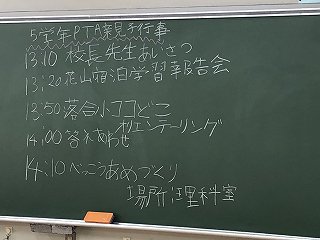 5学年PTA親子行事
13:10 校長先生あいさつ
13:20 花山宿泊学習報告会
13:50 落合小ココどこ
オリエンテーリング
14:00 答えあわせ
14:10 べっこうあめづくり
場所:理科室